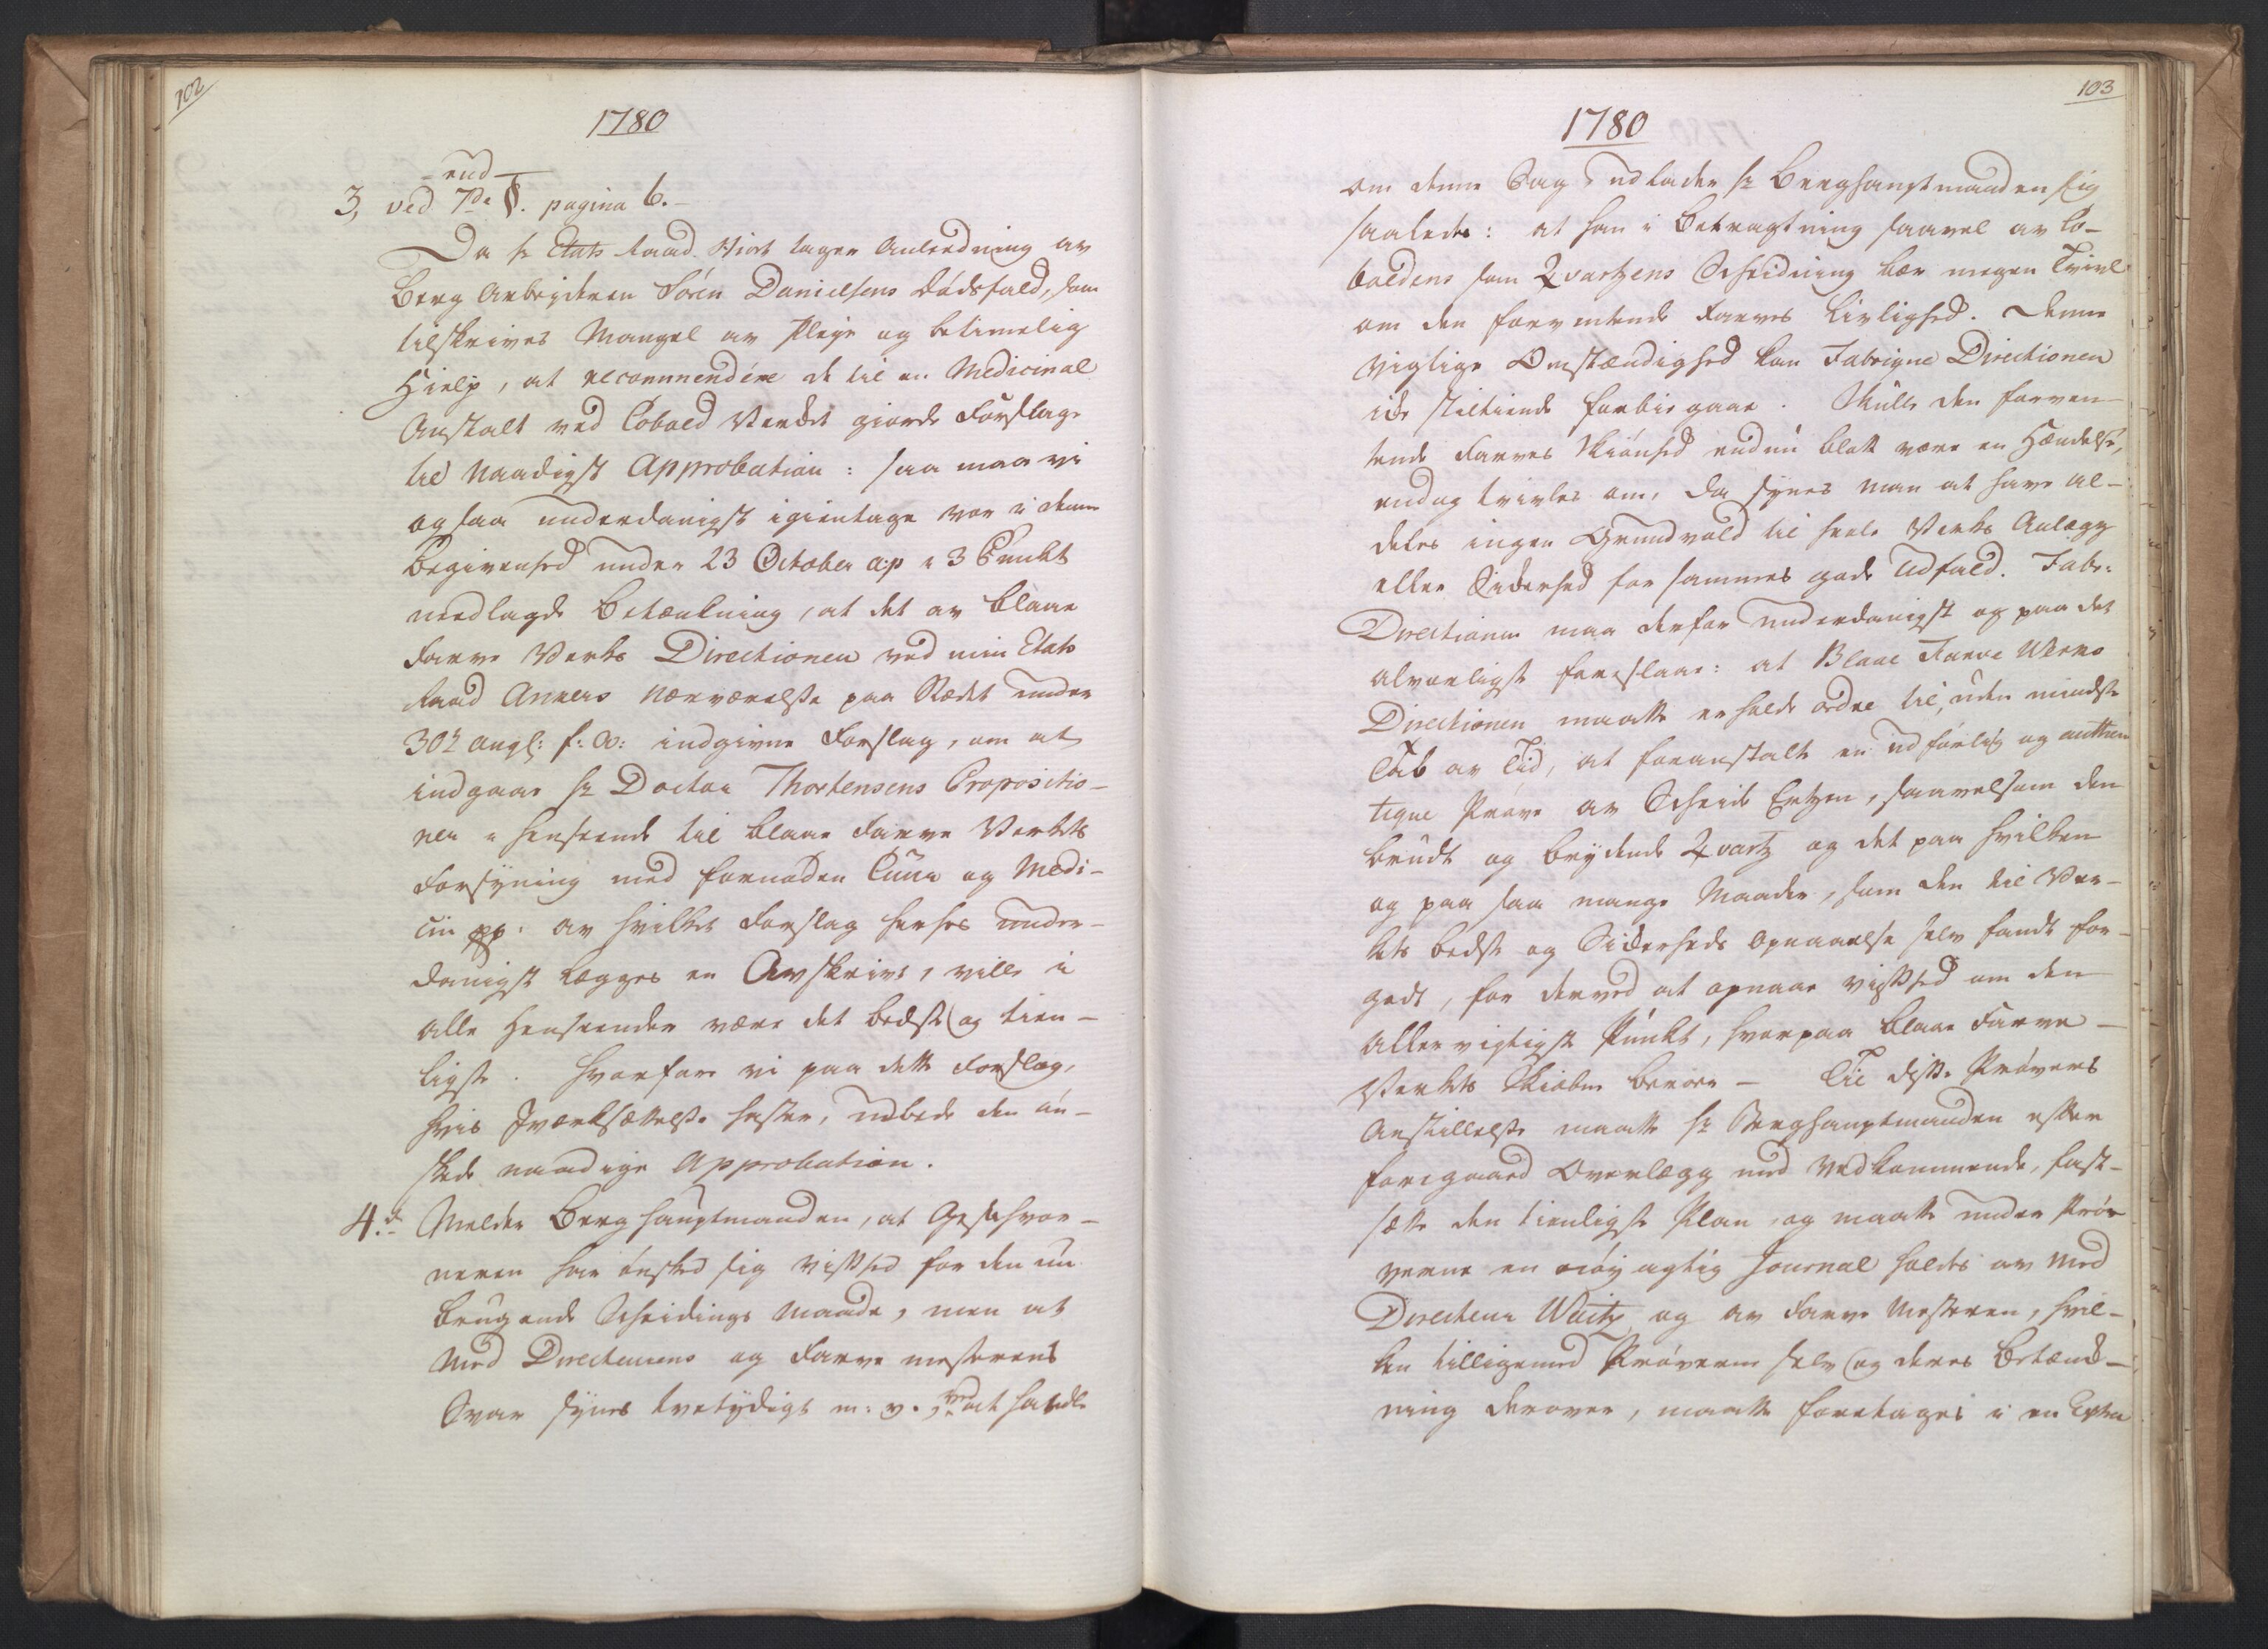 102
1780
end
3, ved 7de §. pagina 6.
Da hr Etats Raad Hiort tager Anledning av
Berg Arbeyderen Sören Danielsens Dödsfald, som
tilskrives Mangel av Pleye og betimelig
Hielp, at recommendére de til en Medicinal
Anstalt ved Cobold Verket giorde Forslage
til Naadigst Approbation: saa maa vi
ogsaa underdanigst igientage vor i denne
Begivenhed under 23 October a:p i 3 Punkt
nedlagde Betænkning, at det av Blaae
Farve Verks Directionen ved min Etats
Raad Ankers Nærværelse paa Stædet under
30te aug: f: A: indgivne Forslag, om at
indgaae hr Doctor Thortensens Propositio-
ner i henseende til Blaae Farve Verkets
Forsyning med fornøden Cuur og Medi-
cin pp: av hvilket Forslag herhos under-
danigst lægges en Avskrivt, ville i
alle Henseender være det bedste og tien-
ligste. Hvorfore vi paa dette Forslag,
hvis Iværksættelse haster, udbede den ön-
skede naadige Approbation.
4.de Melder Berghauptmanden, at Geschwor-
neren har önsked sig vished for den nu
brugende Scheidings Maade, men at
Med Directeurens og Farve mesterens
Svar synes tvetydigt m: v: ved at handle
103
1780
om denne Sag, udlader hr Berghauptmanden sig
saaledes: at han i Betragtning saavel av Co-
boldens som Qvartzens Scheidning bær megen Tvivl
om den forventende Farves Livlighed. Denne
vigtige Omstændighed kan Fabrique Directionen
icke stiltiende forbiegaae. Skulle den forven-
tende Farves Skiönhed endnu blott være en Hændelse,
endog tvivles om, da synes man at have al-
deles ingen Grundvold til heele Verks Anlægg
eller Sickerhed for sammes gode Udfald. Fabr:
Directionen maa derfor underdanigst og paa det
alvorligst foreslaae: at Blaae Farve Werks
Directionen maatte erholde ordre til, uden mindste
Tab av Tid, at foranstalte en udförlig og authen
tique Pröve av Scheide Ertzen, saavelsom den
brudt og brydende Qvartz og det paa hvilken
og paa saa mange Maader, som den til Ver-
kets bedste og Sickerheds Opnaaelse selv fandt for-
godt, for derved at opnaae vished om den
allervigtigste Punkt, hvorpaa Blaae Farve-
Verkets Skiæbne beroer - Til disse Pröwers
Anstillelse maatte hr Berghauptmanden efter
foregaaed Overlægg med Vedkommende, fast-
sætte den tienligste Plan, og maatte under Pröv
verne en nöyagtig Journal holdes av Med
Directeur Waitz og av Farve Mesteren, hvil-
ken tilligemed Pröverne selv og deres Betænk-
ning derover, maatte foretages i en Extra